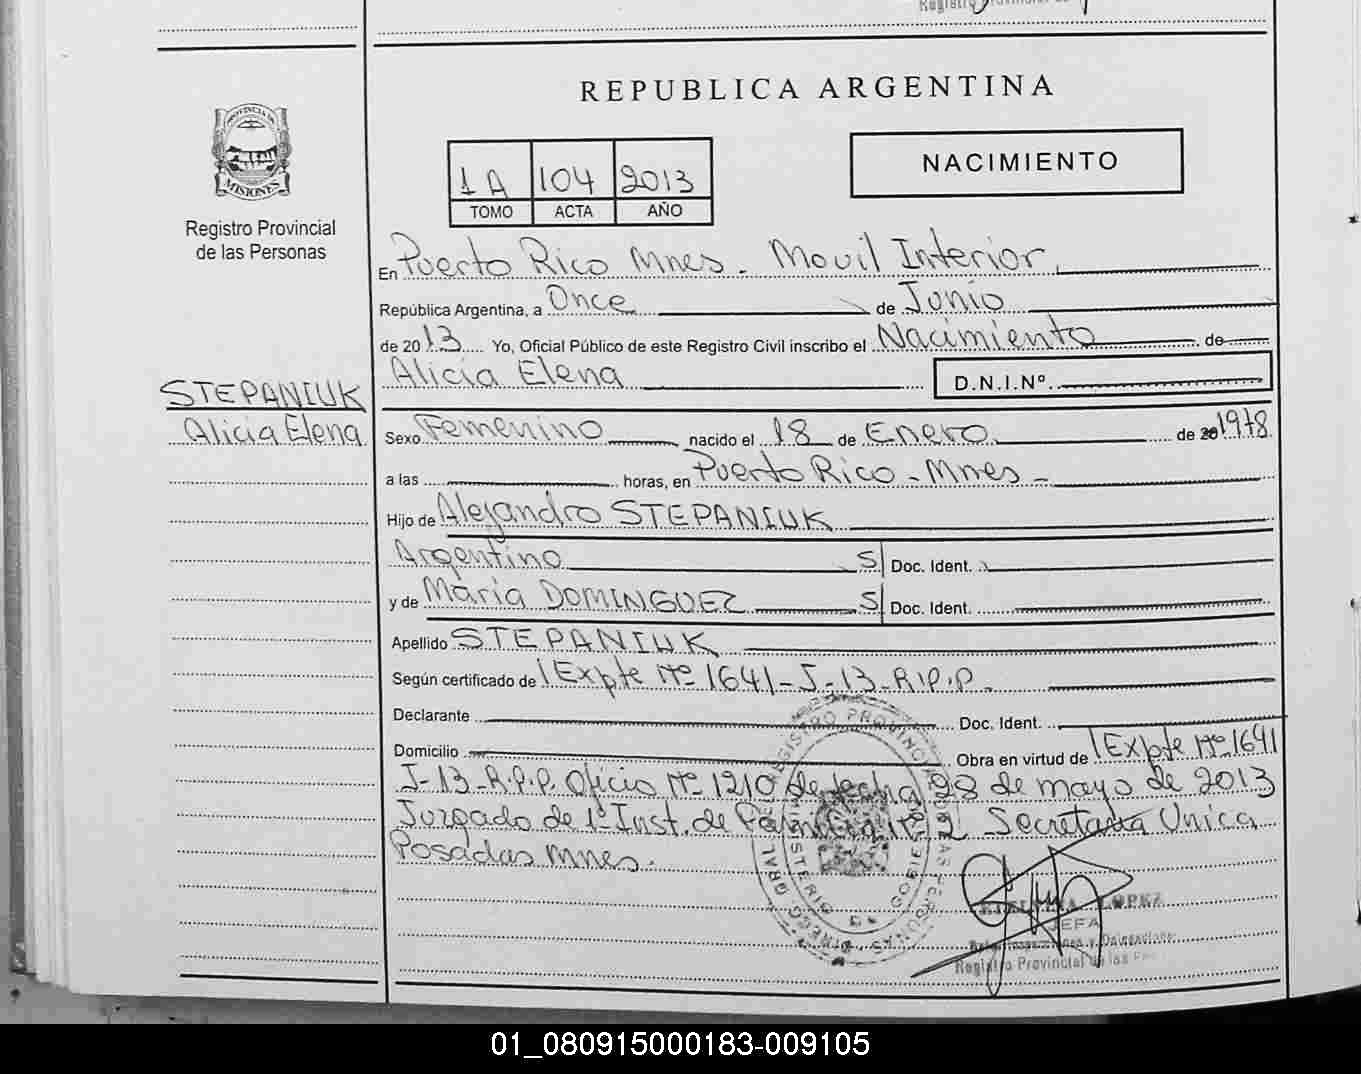 Registro Provincial de
REPUBLICA ARGENTINA
PROVINCIA DE
MISIONES
Registro Provincial
de las Personas
1A 104 2013
TOMO ACTA AÑO
NACIMIENTO
En Puerto Rico Mnes. Movil Interior.
República Argentina, a Once de Junio
de 2013 Yo, Oficial Público de este Registro Civil inscribo el Nacimiento de
Alicia Elena D.N.I.Nº.
STEPANIUK
Alicia Elena
Sexo Femenino nacido el 18 de Enero de 20 1978
a las horas, en Puerto Rico - Mnes -
Hijo de Alejandro STEPANIUK
Argentino S/ Doc. Ident.
y de María DOMINGUEZ S/ Doc. Ident.
Apellido STEPANIUK
Según certificado de Expte Nº 1641-J-13-R.P.P.
Declarante Doc. Ident.
Domicilio Obra en virtud de Expte Nº 1641
J-13-R.P.P. Oficio Nº 1210 de fecha 28 de mayo de 2013
Juzgado de 1º Inst. de Familia Nº 2 Secretaria Unica
Posadas Mnes.
LOPEZ
JEFA
Registro Provincial de las
01_080915000183-009105